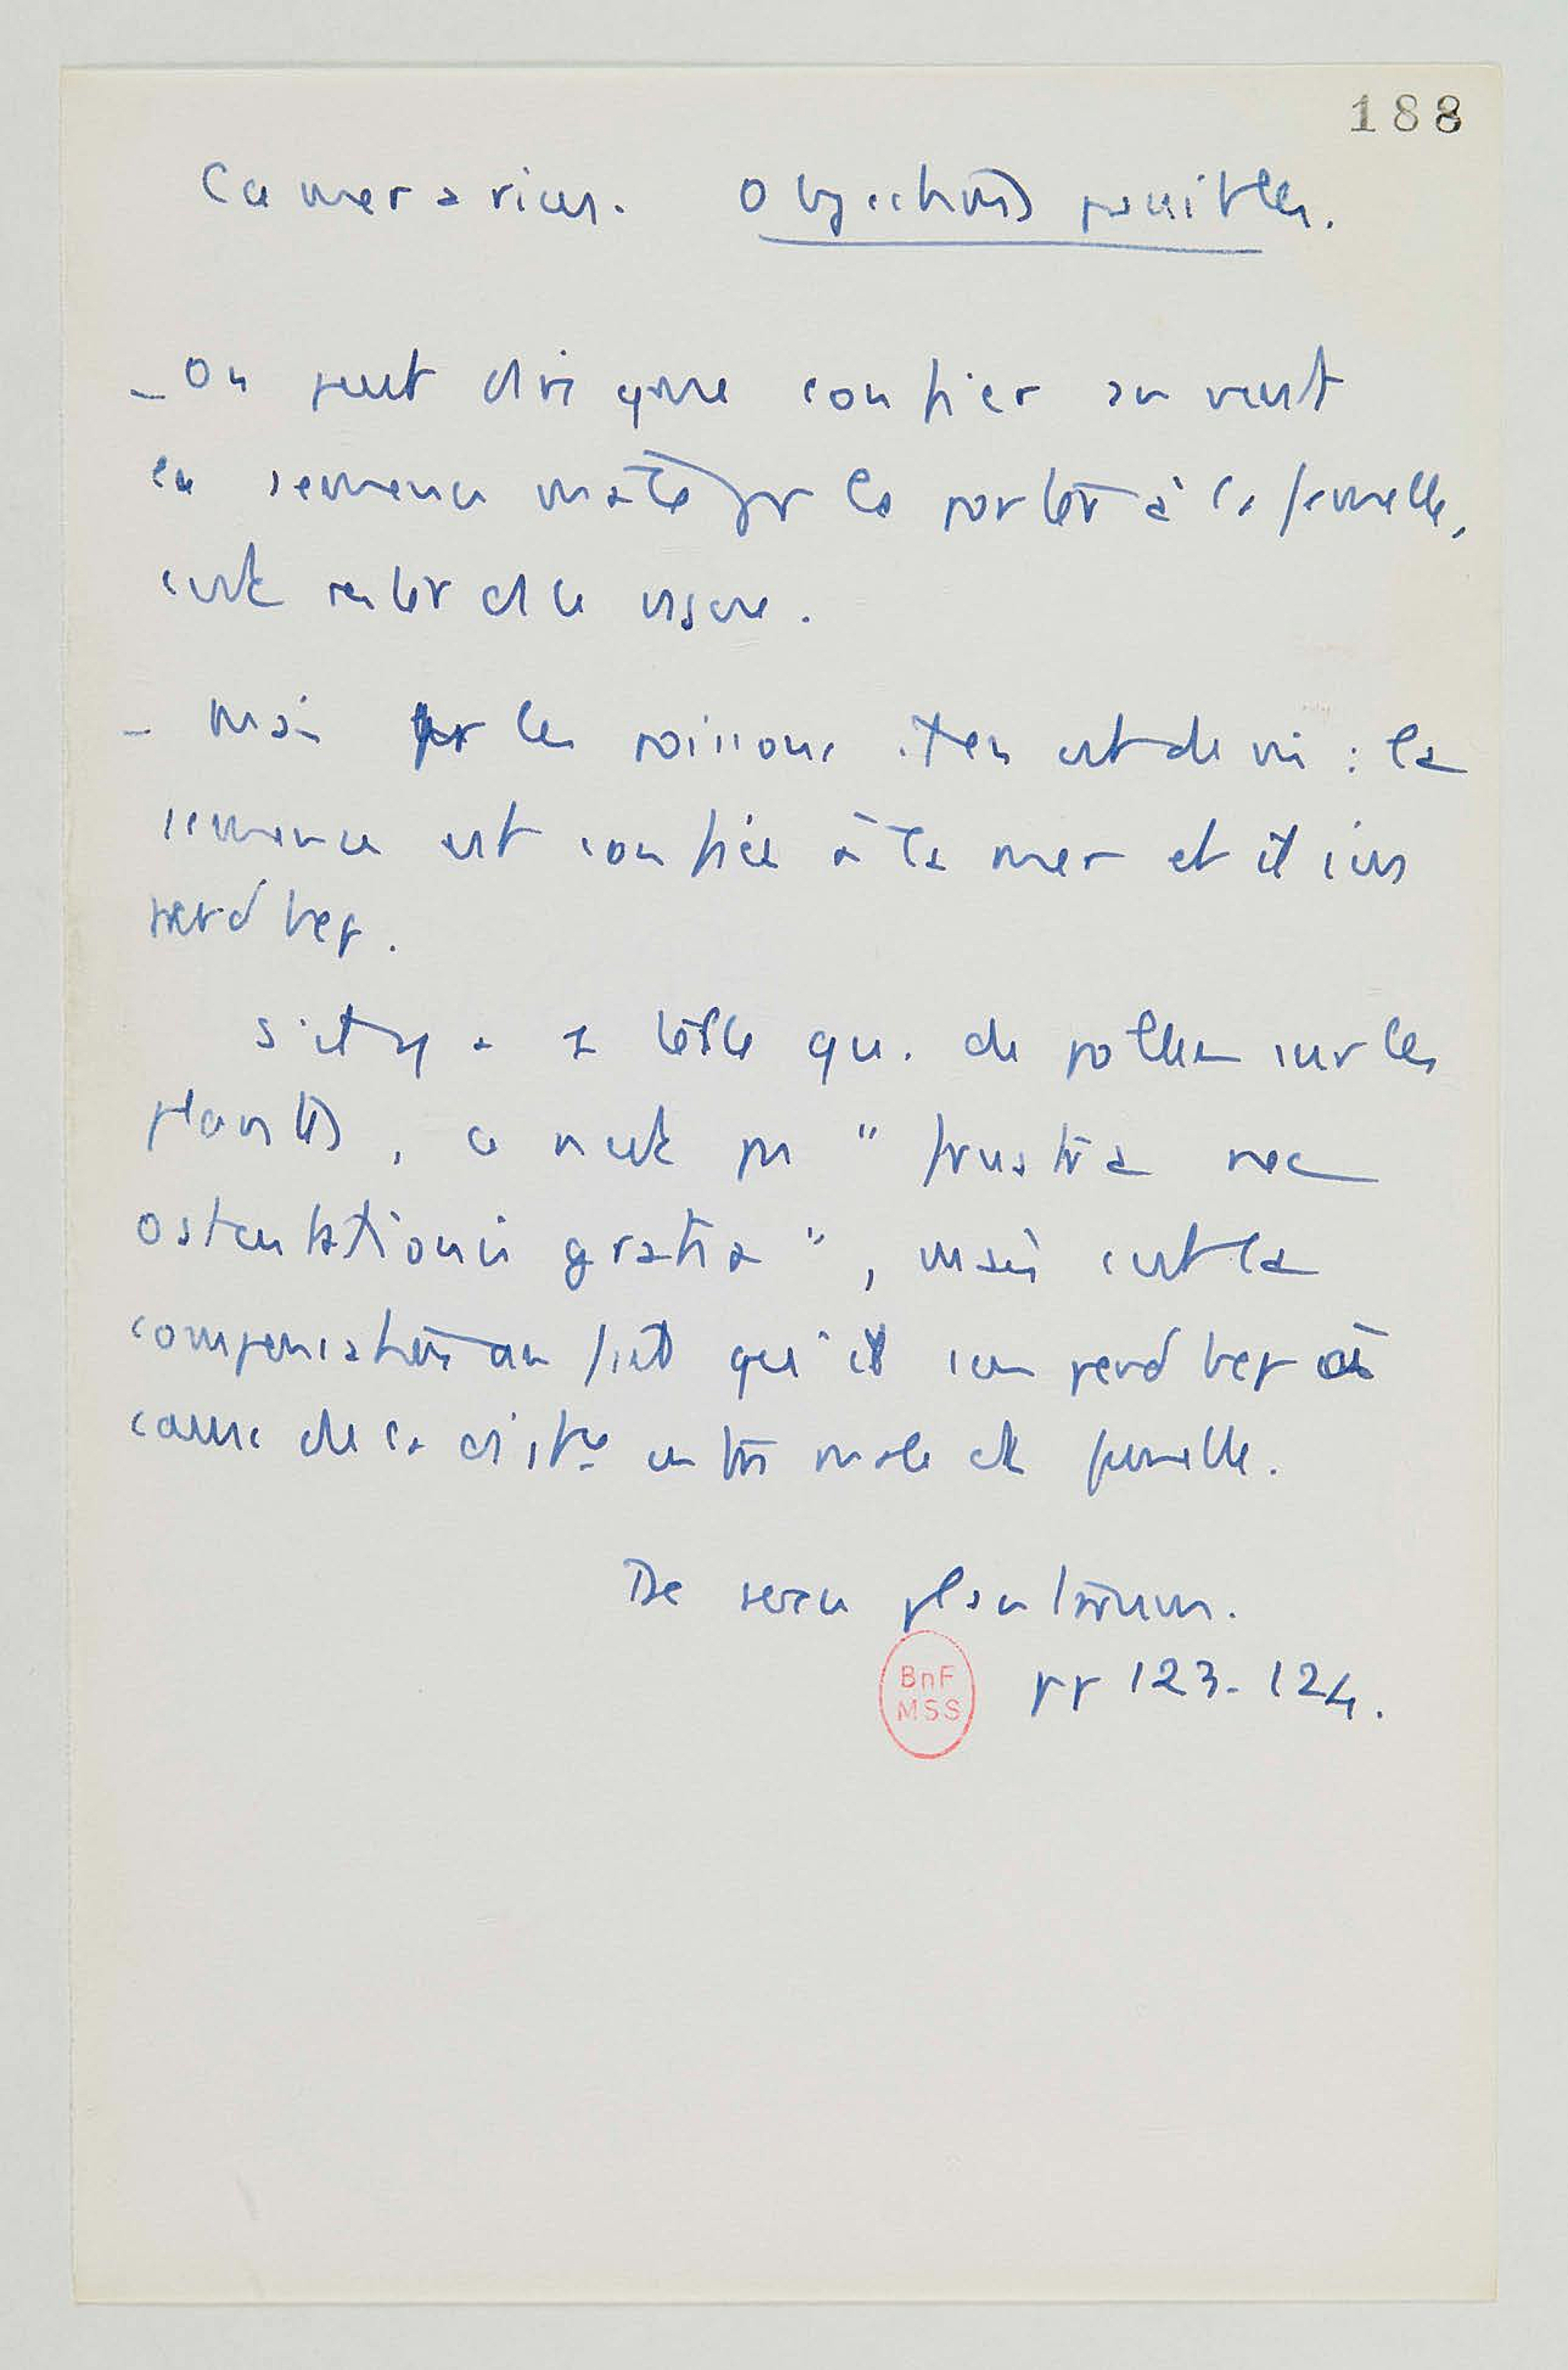 188
Camerarius. Objections possibles.
- On peut dire que confier au vent
la semence mâle pr la porter à la femelle,
c'est rester ds le vague.
- Mais pr les poissons il en est de m : la
semence est confiée à la mer et il s'en
perd bcp.
S'il y a 1 telle qu. de pollen sur les
plantes, ce n'est pas "frustra nec
ostentationis gratia", mais c'est la
compensation au fait qu'il s'en perd bcp à
cause de la distce entre mâle et femelle.
De sexu plantarum.
BnF
MSS
pp 123-124.